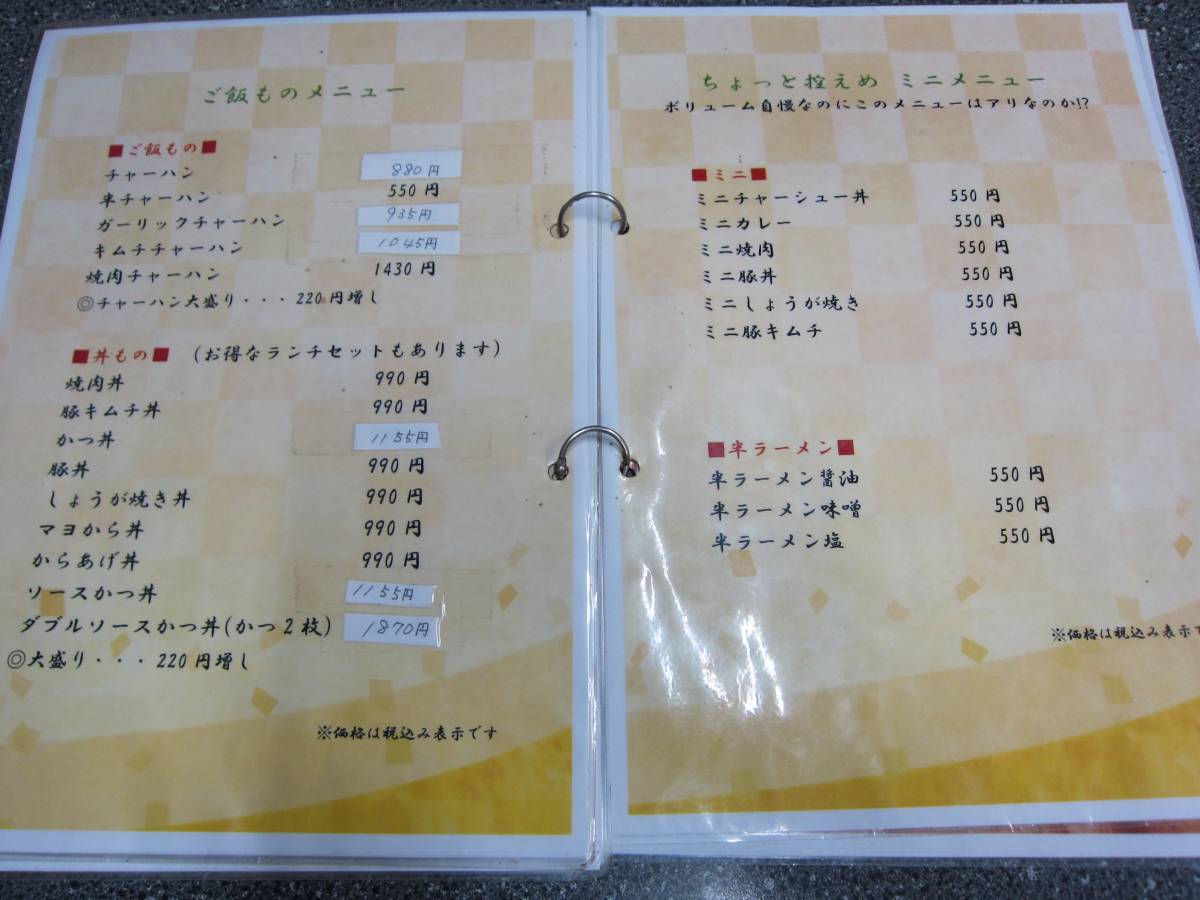 ご飯ものメニュー
■ご飯もの■
チャーハン 880円
半チャーハン 550円
ガーリックチャーハン 935円
キムチチャーハン 1045円
焼肉チャーハン 1430円
◎チャーハン大盛り・・・220円増し
■丼もの■ (お得なランチセットもあります)
焼肉丼 990円
豚キムチ丼 990円
かつ丼 1155円
豚丼 990円
しょうが焼き丼 990円
マヨから丼 990円
からあげ丼 990円
ソースかつ丼 1155円
ダブルソースかつ丼(かつ2枚) 1870円
◎大盛り・・・220円増し
※価格は税込み表示です
ちょっと控えめ ミニメニュー
ボリューム自慢なのにこのメニューはアリなのか!?
■ミニ■
ミニチャーシュー丼 550円
ミニカレー 550円
ミニ焼肉 550円
ミニ豚丼 550円
ミニしょうが焼き 550円
ミニ豚キムチ 550円
■半ラーメン■
半ラーメン醤油 550円
半ラーメン味噌 550円
半ラーメン塩 550円
※価格は税込み表示で